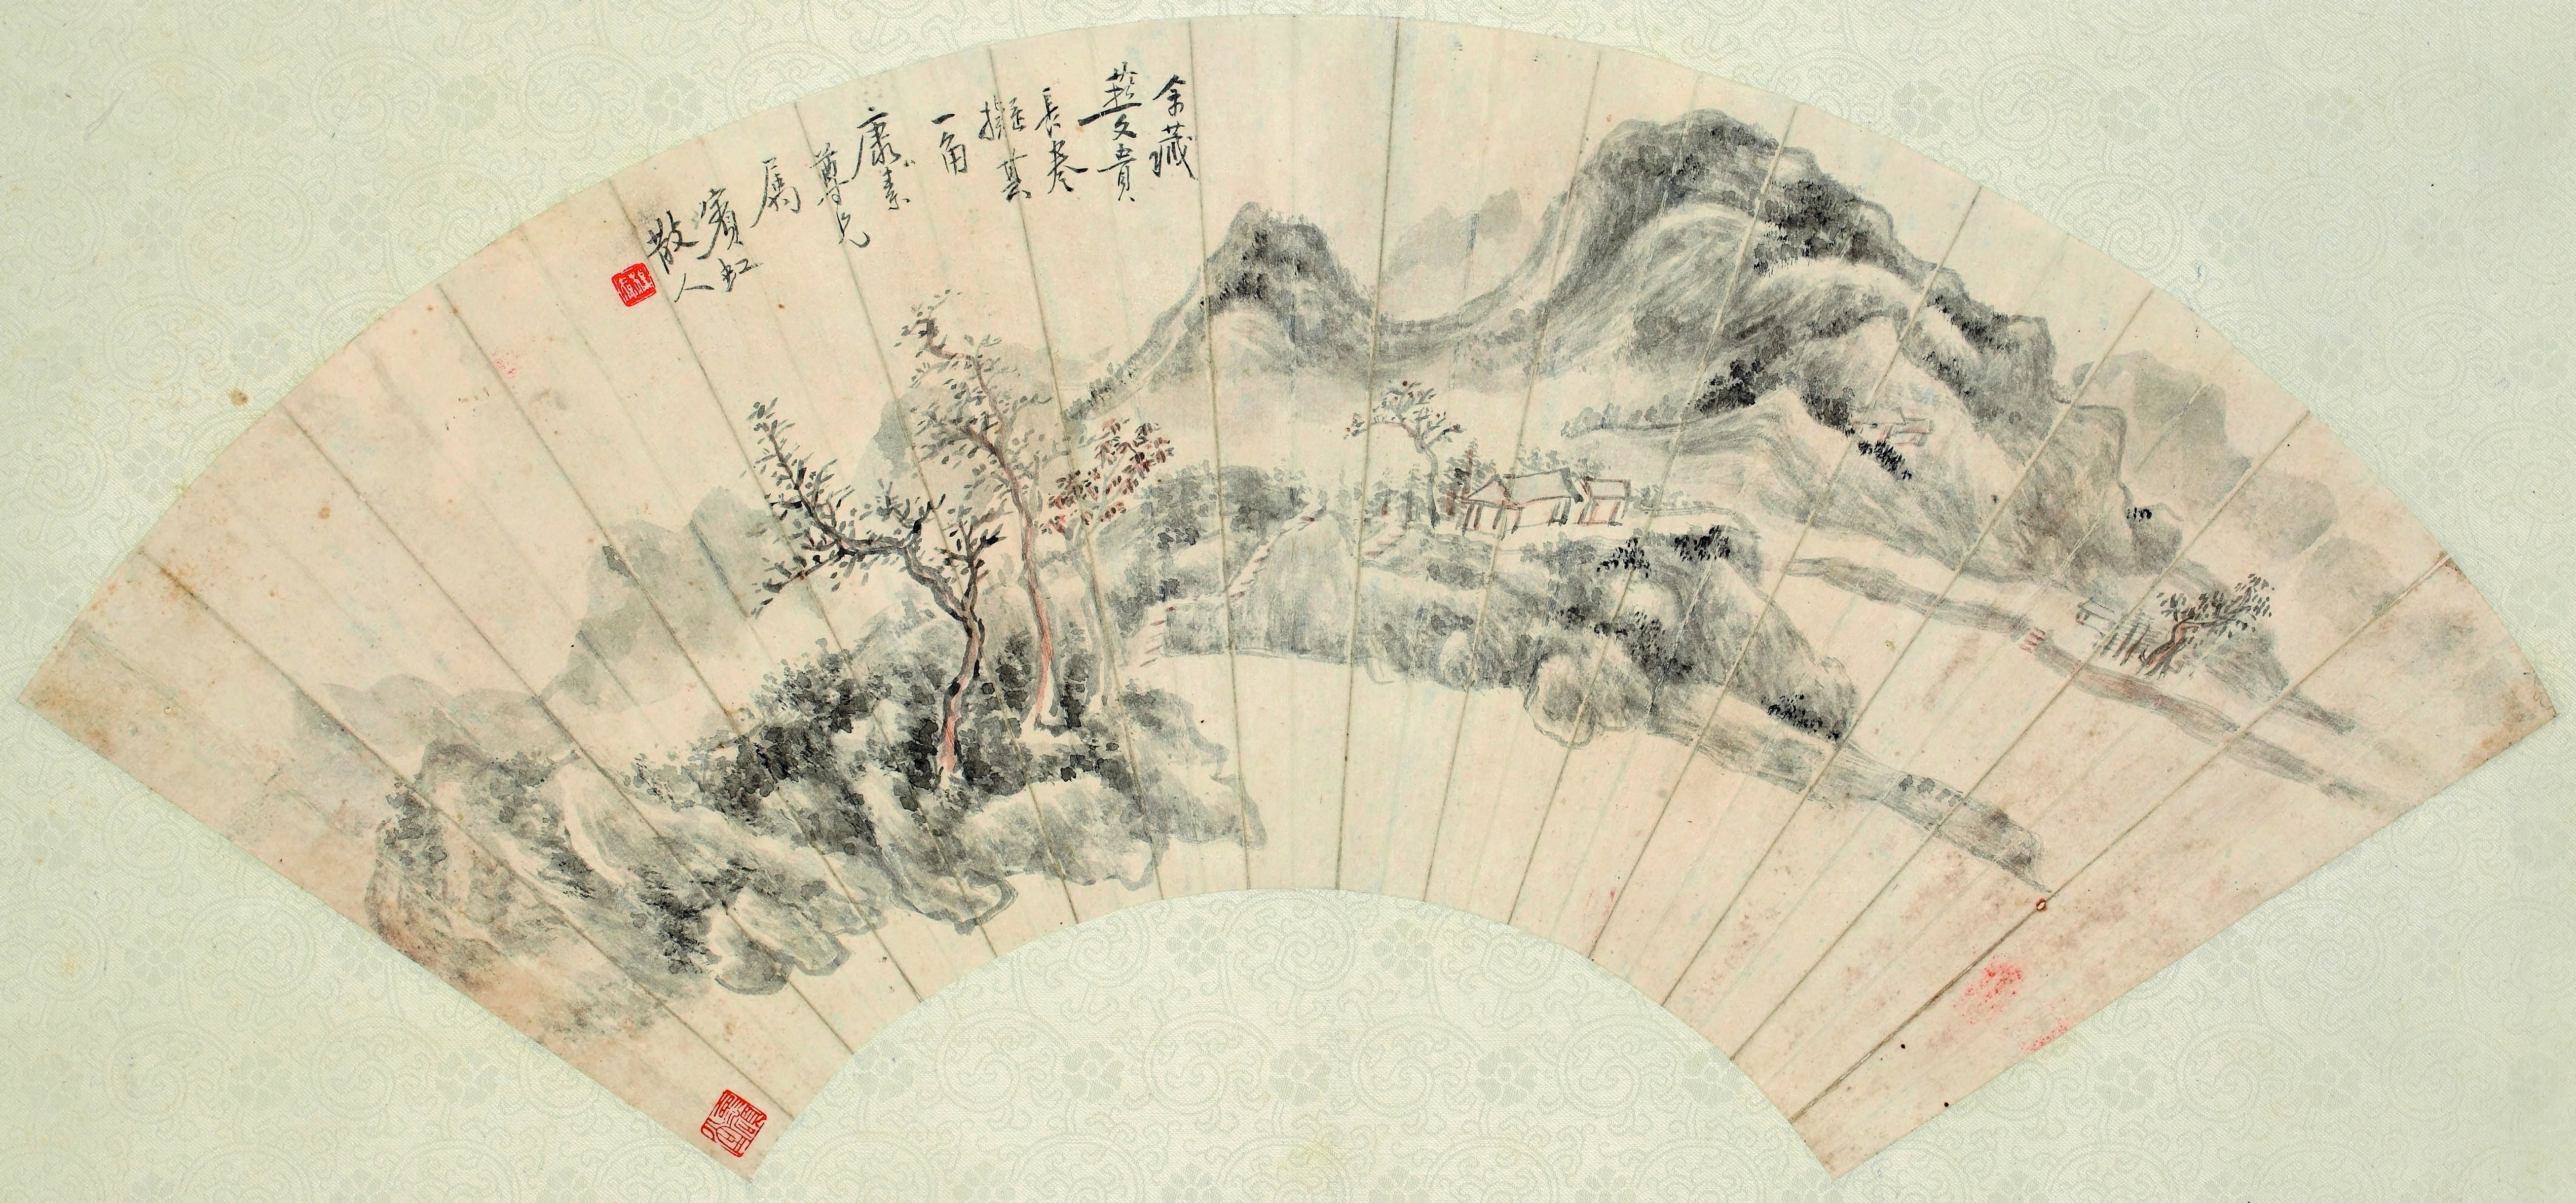 余藏
燕文貴
長卷
撫其
一角
康素
尊兄
屬
賓虹
散人